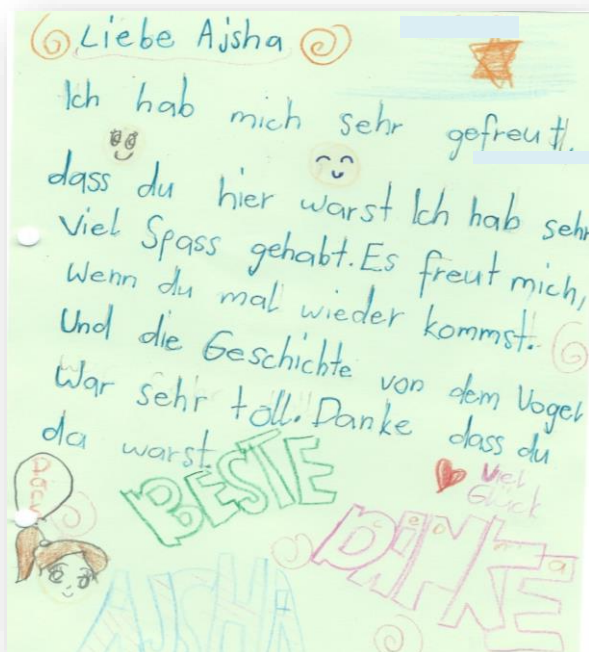 Liebe Ajsha
Ich hab mich sehr gefreut,
dass du hier warst Ich hab sehr
Viel Spass gehabt. Es freut mich,
Wenn du mal wieder kommst.
Und die Geschichte von dem Vogel
War sehr toll. Danke dass du
da warst.
BESTE
Viel
Glück
DANKE
AJSHA